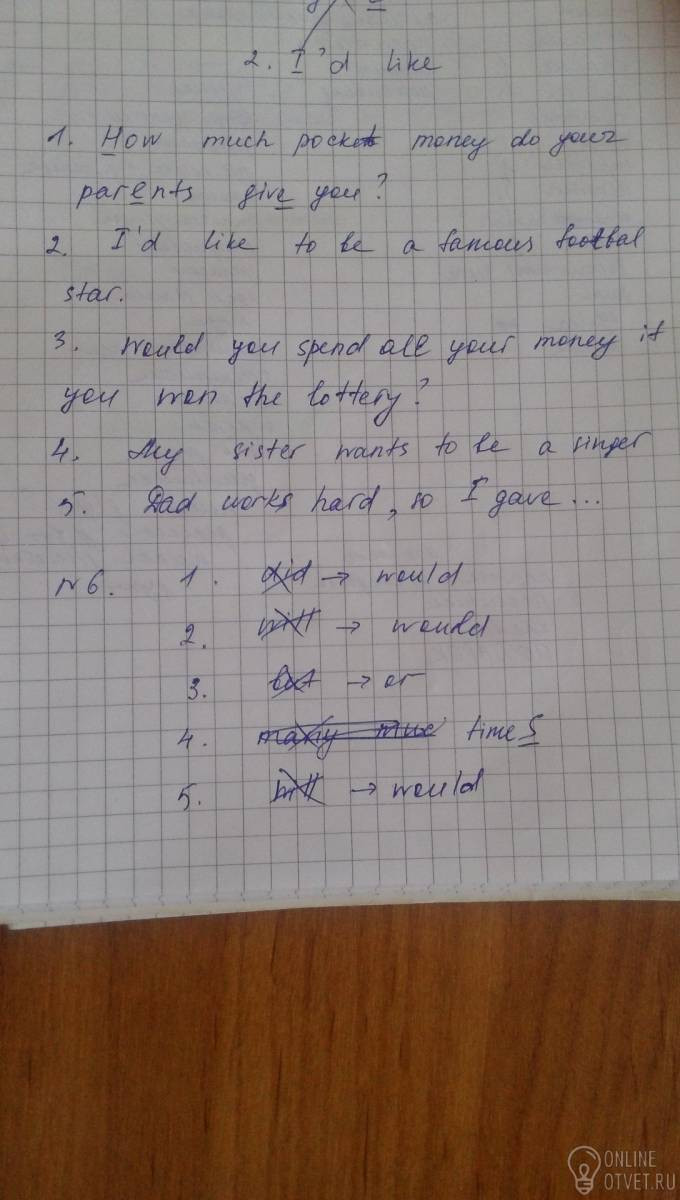 2. I'd like
1. How much pocket money do your
parents give you?
2. I'd like to be a famous footbal
star.
3. Would you spend all your money if
you won the lottery?
4. My sister wants to be a singer
5. Dad works hard, so I gave ...
N 6. 1. did → would
2. will → would
3. but → or
4. many times
5. will → would
ONLINE
OTVET.RU